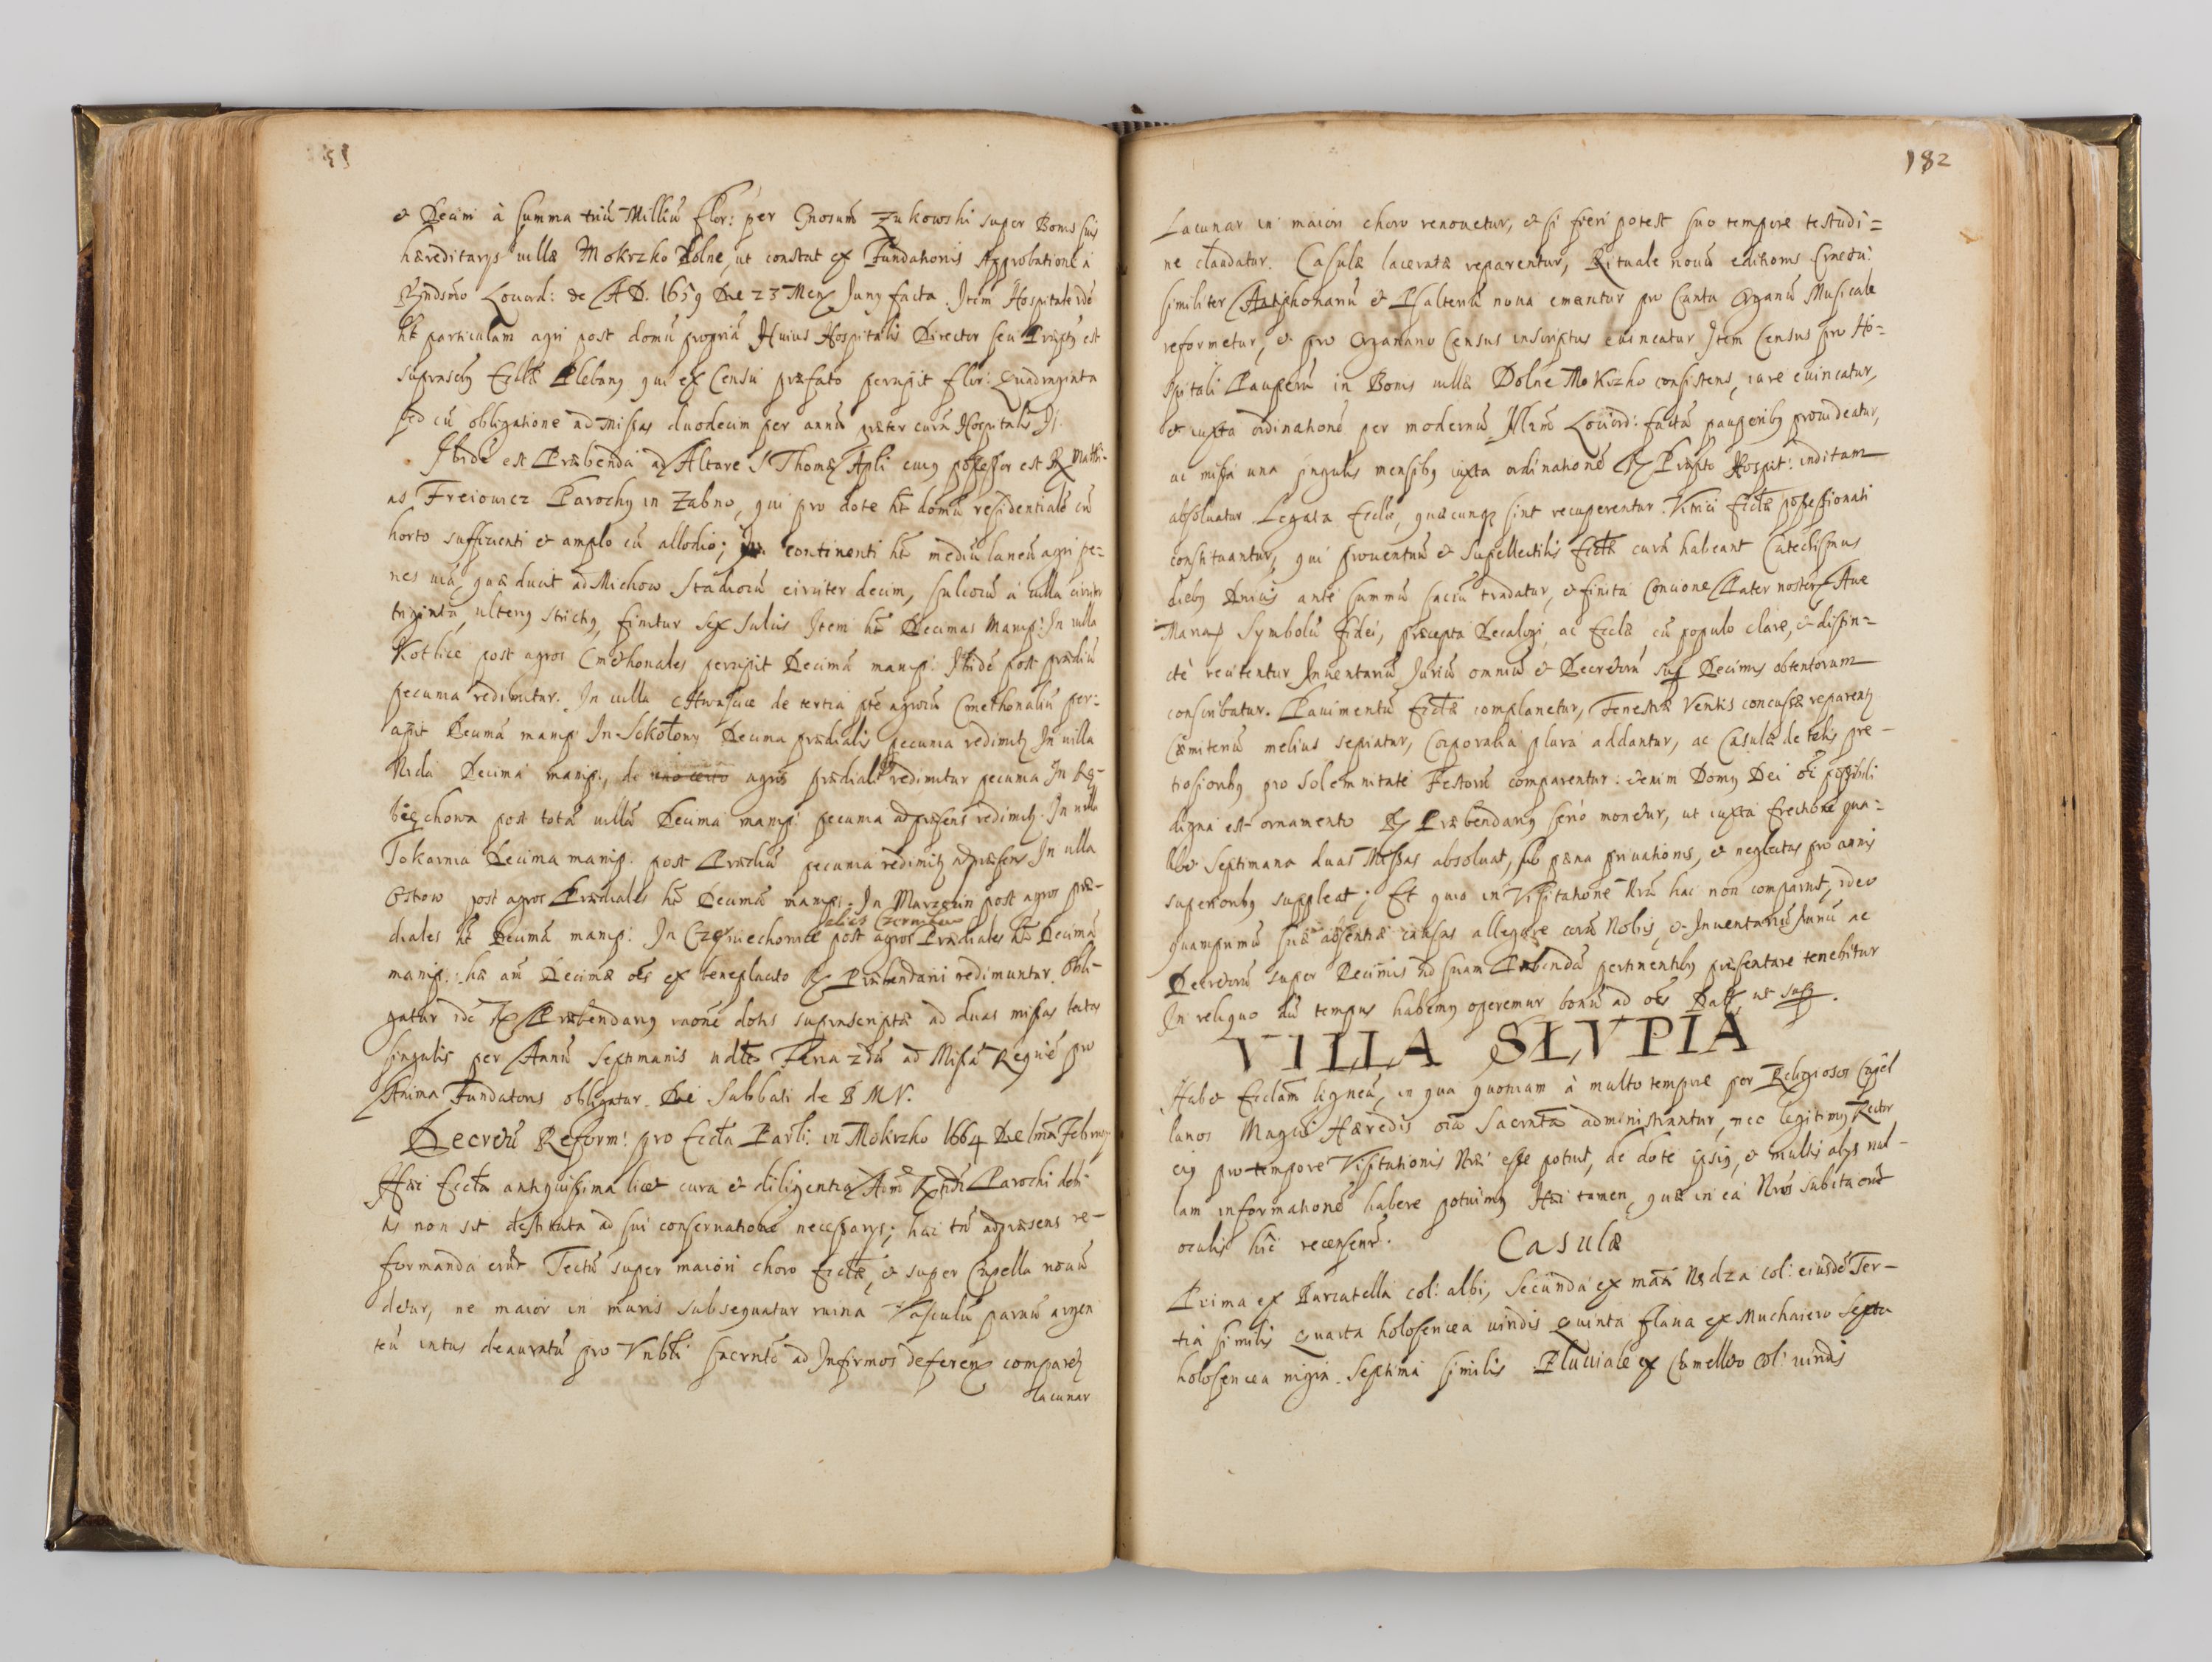 & Decim à summa triũ Milliũ flor: per Gnosum Zukowski super Bonis suis
hæreditarys villæ Mokrzko Dolne, ut constat ex Fundationis Approbatione à
Rndsmo Loci Ord: de A D. 1659 Die 23 Mens Juny facta. Item Hospitale idē
ht particulam agri post domũ propriã Huius Hospitalis Director seu Præptꝰ est
suprascrꝰ Eccłæ Plebanꝰ qui ex Censu præfato percipit flor: Quadraginta
sed cũ obligatione ad Missas duodecim per annũ præter curã Hospitalis
Ibidē est Præbenda ad Altare S Thomæ Apli cuiꝰ possessor est R Matthi-
as Freiowicz Parochꝰ in Zabno, qui pro dote ht domũ residentialē cũ
horto sufficienti & amplo cũ allodio; In continenti ht mediũ laneũ agri pe-
nes viã quæ ducit ad Michow Stadiorũ circiter decim, sulcorũ à villa circiter
triginta, ulterꝰ strictꝰ, finitur sex sulcis Item ht Decimas Manip: In villa
Kotlice post agros Cmethonales percipit Decimã manip: Ibidē post prædiũ
pecunia redimitur. In villa Chwascice de tertia pte agrorũ Cmethonaliũ per-
cipit Decimã manip: In Sokołowy Decima prædialis pecunia redimitꝰ In villa
Nida Decima manip:, de uno certo agris prædiali redimitur pecunia In Rę-
biechowa post totã villã Decima manip: pecunia ad præsens redimitꝰ. In villa
Tokarnia Decima manip: post Prædiũ pecunia redimitꝰ ad præsens In villa
Ostrow post agros Prædiales ht Decimã manip: In Marzęcin post agros præ-
alias Czerniow
diales ht Decimã manip: In Czerniechowice post agros Prædiales ht Decimã
manip: hæ aũt Decimæ oēs ex beneplacito R Præbendarii redimuntur. Obli-
gatur idē R Præbendarꝰ raõne dotis suprascriptæ ad duas missas lectas
singulis per Annũ Septimanis Feria 2dâ ad Missã Requiē pro
Anima Fundatoris obligatur. Die Sabbati de B M V.
Decretũ Reform: pro Eccła Parli: in Mokrzko 1664 Die Februarÿ
Hæc Eccła antiquissima licet cura & diligentia Adm Rndi Parochi debi-
tis non sit destituta ad sui conseruationē necessarys; hæc tñ ad præsens re-
formanda erũt Tectũ super maiori choro Eccłæ, & super Capella nouũ
detur, ne maior in muris subsequatur ruina Vasculũ paruũ argen
teũ intus deauratũ pro Vnbłi Sacrntõ ad Infirmos deferen comparetꝰ
lacunar
182
Lacunar in maiori choro renouetur, & si fieri potest suo tempore testudi=
ne claudatur. Casulæ laceratæ reparentur, Rituale nouũ editionis Cracou:
similiter Antiphonariũ & Psalteriũ noua emantur pro Cantu Organũ Musicale
reformetur, & pro Organario Census inscriptus euincatur Item Census pro Ho=
spitali Pauperũ in Bonis villæ Dolne Mokrzko consistens, iure euincatur,
& iuxta ordinationē per modernũ Illrm Loci Ord: factã pauperibꝰ prouideatur,
ac missa una singulis mensibꝰ iuxta ordinationē R Præpto Hospit: inditam
absoluatur. Legata Eccłæ, quæcunqꝫ sint recuperentur. Vitrici Eccłæ possessionati
constituantur, qui prouentuũ & Supellectilis Eccłæ curã habeant Catechismus
diebꝰ Dnicis ante summũ sacrũ tradatur, & finita Concione Pater noster Aue
Maria Symbolũ fidei, præcepta Decalogi, ac Eccłæ cũ populo clare, & distin=
ctè recitentur Inuentariũ Juriũ omniũ & Decretorũ sup Decimis obtentorum
conscribatur. Pauimentũ Eccłæ complanetur, Fenestræ Ventis concussæ reparentꝰ
Cæmiteriũ melius sepiatur, Corporalia plura addantur, ac Casulæ de telis pre-
tiosioribꝰ pro Solemnitate Festorũ comparentur: etenim Domꝰ Dei oī possibili
digna est ornamento R Præbendarꝰ serio monetur, ut iuxta Erectionē qua=
libet Septimana duas Missas absoluat, sub pæna priuationis, & neglectas pro annis
superioribꝰ suppleat; Et quia in Visitatione Nrã hac non comparuit, ideo
quamprimũ suæ absentiæ causas allegare corã Nobis, & Inuentariũ suũ ac
Decretorũ super Decimis ad suam Præbendã pertinentibꝰ præsentare tenebitur
In reliquo dũ tempus habemꝰ operemur bonũ ad oēs Dat ut sup.
VILLA SŁVPIA
Habet Eccłam ligneã, in qua quoniam à multo tempore per Religiosos Capel
lanos Magci Hæredis oïa Sacrnta administrantur, nec legitimꝰ Rector
eiꝰ pro tempore Visitationis Nræ esse potuit, de dote ipsiꝰ, & multis alys nul-
lam informationē habere potuimꝰ Hæc tamen, quæ in ea Nris subiecta erãt
oculis hic recensent.
Casulæ
Prima ex Parcatella col: albi, Secunda ex mãa Nædza col: eiusdē Ter-
tia similis Quarta holosericea viridis Quinta flaua ex Muchaiero Sexta
holosericea nigra. Septima similis Pluuiale ex Camelloto col: viridis